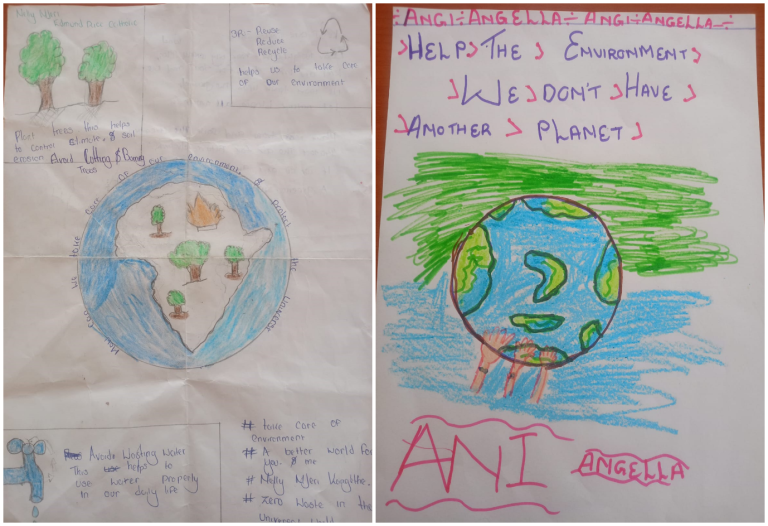 Edmond Rice Catholic
3R - Reuse
Reduce
Recycle
helps us to take care
of our environment
Plant trees this helps
to control climate & soil
erosion Avoid Cutting & Burning
Trees
How can we take care of our environment & protect the Universe
Avoide Wasting Water
This helps to
use water properly
In our daily life
# take care of
environment
# A better world for
you & me
# Zero Waste in the
ANGI÷ANGELLA÷ ANGI÷ANGELLA÷
HELP THE ENVIRONMENT
WE DON'T HAVE
ANOTHER PLANET
ANI
ANGELLA